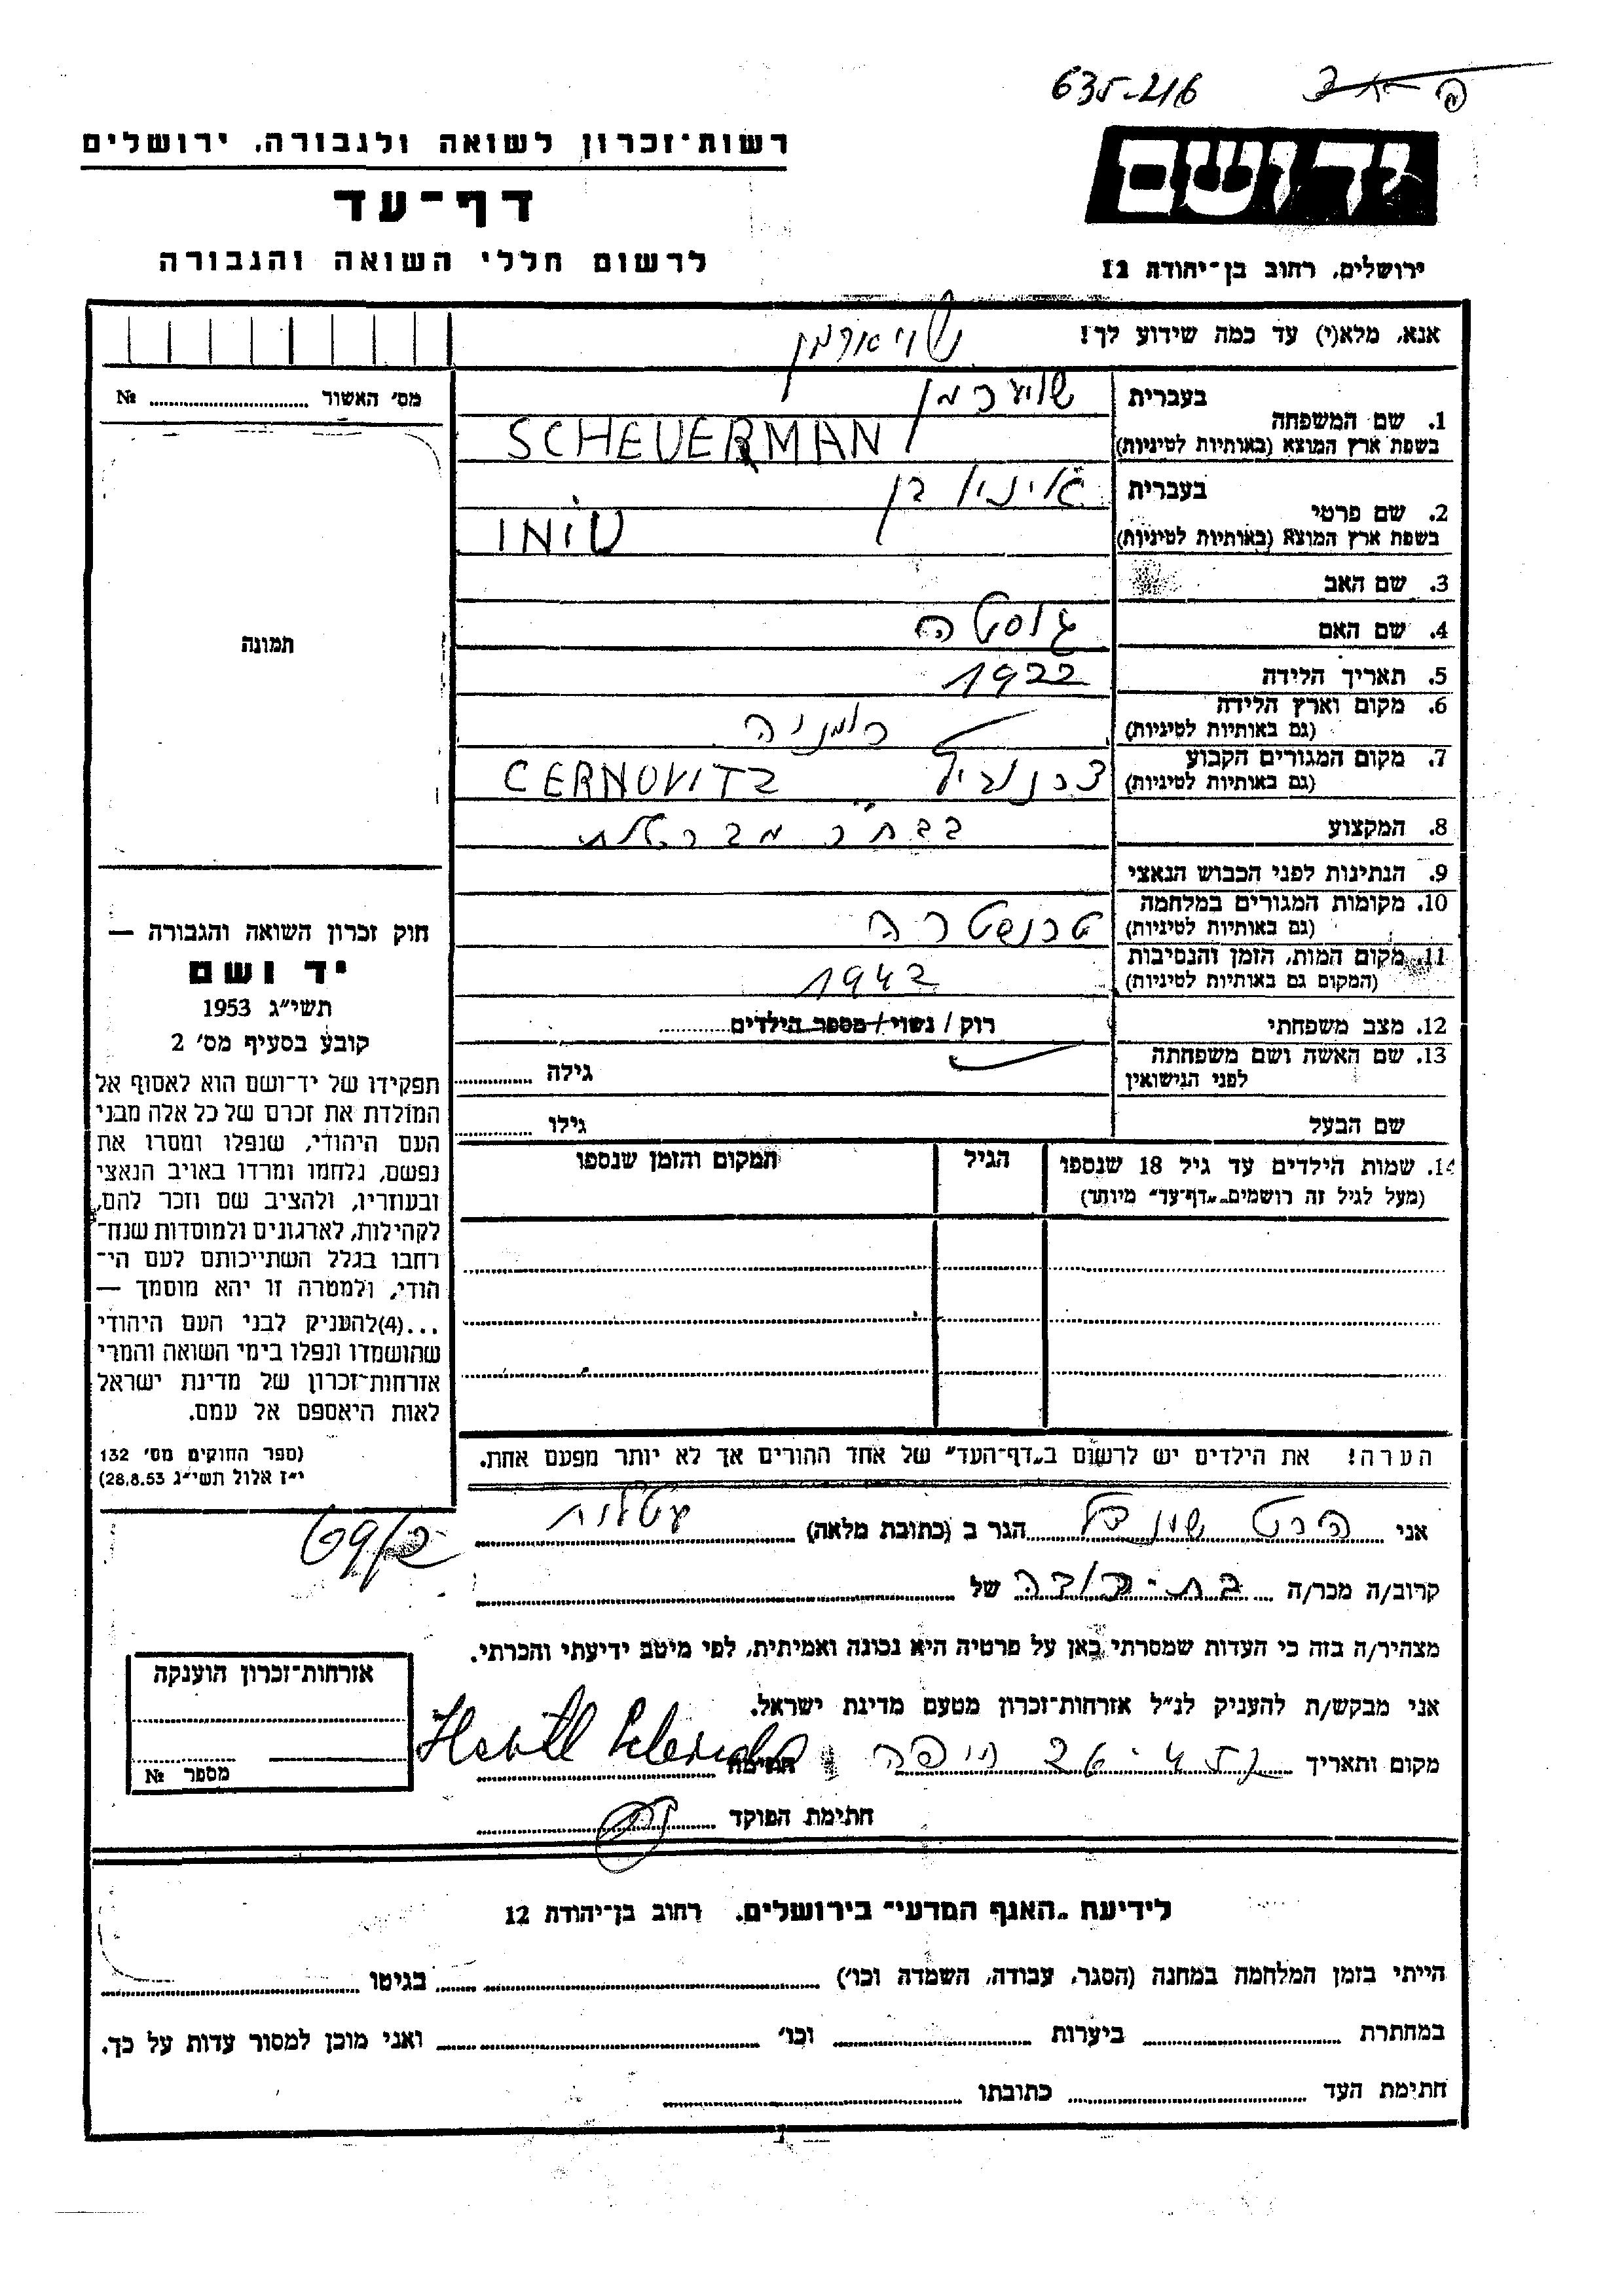 635-216
רשות־זכרון לשואה ולגבורה, ירושלים
יד ושם
דף־עד
לרשום חללי השואה והגבורה
ירושלים, רחוב בן־יהודה 12
אנא, מלא(י) עד כמה שידוע לך!
מס׳ האשור ........ №
בעברית
1. שם המשפחה
בשפת ארץ המוצא (באותיות לטיניות) SCHEUERMAN
בעברית
2. שם פרטי
בשפת ארץ המוצא (באותיות לטיניות)
3. שם האב
4. שם האם גוסטה
5. תאריך הלידה 1922
6. מקום וארץ הלידה רומניה
(גם באותיות לטיניות)
7. מקום המגורים הקבוע CERNOVITZ
(גם באותיות לטיניות)
8. המקצוע
9. הנתינות לפני הכבוש הנאצי
10. מקומות המגורים במלחמה
(גם באותיות לטיניות)
11. מקום המות, הזמן והנסיבות 1942
(המקום גם באותיות לטיניות)
12. מצב משפחתי רוק / נשוי / מספר הילדים
13. שם האשה ושם משפחתה גילה
לפני הנישואין
שם הבעל גילו
תמונה
חוק זכרון השואה והגבורה —
יד ושם
תשי״ג 1953
קובע בסעיף מס׳ 2
תפקידו של יד־ושם הוא לאסוף אל
המולדת את זכרם של כל אלה מבני
העם היהודי, שנפלו ומסרו את
נפשם, נלחמו ומרדו באויב הנאצי
ובעוזריו, ולהציב שם וזכר להם,
לקהילות, לארגונים ולמוסדות שנח־
רחבו בגלל השתייכותם לעם הי־
הודי, ולמטרה זו יהא מוסמך —
...(4)להעניק לבני העם היהודי
שהושמדו ונפלו בימי השואה והמרי
אזרחות־זכרון של מדינת ישראל
לאות היאספם אל עמם.
(ספר החוקים מס׳ 132
י״ז אלול תשי״ג 28.8.53)
14. שמות הילדים עד גיל 18 שנספו הגיל המקום והזמן שנספו
(מעל לגיל זה רושמים „דף־עד״ מיוחד)
הערה! את הילדים יש לרשום ב„דף־העד״ של אחד ההורים אך לא יותר מפעם אחת.
אני הגר ב (כתובת מלאה)
קרוב/ה מכר/ה בת־דודה של
מצהיר/ה בזה כי העדות שמסרתי כאן על פרטיה היא נכונה ואמיתית, לפי מיטב ידיעתי והכרתי.
אני מבקש/ת להעניק לנ״ל אזרחות־זכרון מטעם מדינת ישראל.
מקום ותאריך חיפה חתימה
חתימת הפוקד
אזרחות־זכרון הוענקה
מספר №
לידיעת „האגף המדעי״ בירושלים, רחוב בן־יהודה 12
הייתי בזמן המלחמה במחנה (הסגר, עבודה, השמדה וכו׳) בגיטו
במחתרת ביערות וכו׳ ואני מוכן למסור עדות על כך.
חתימת העד כתובתו